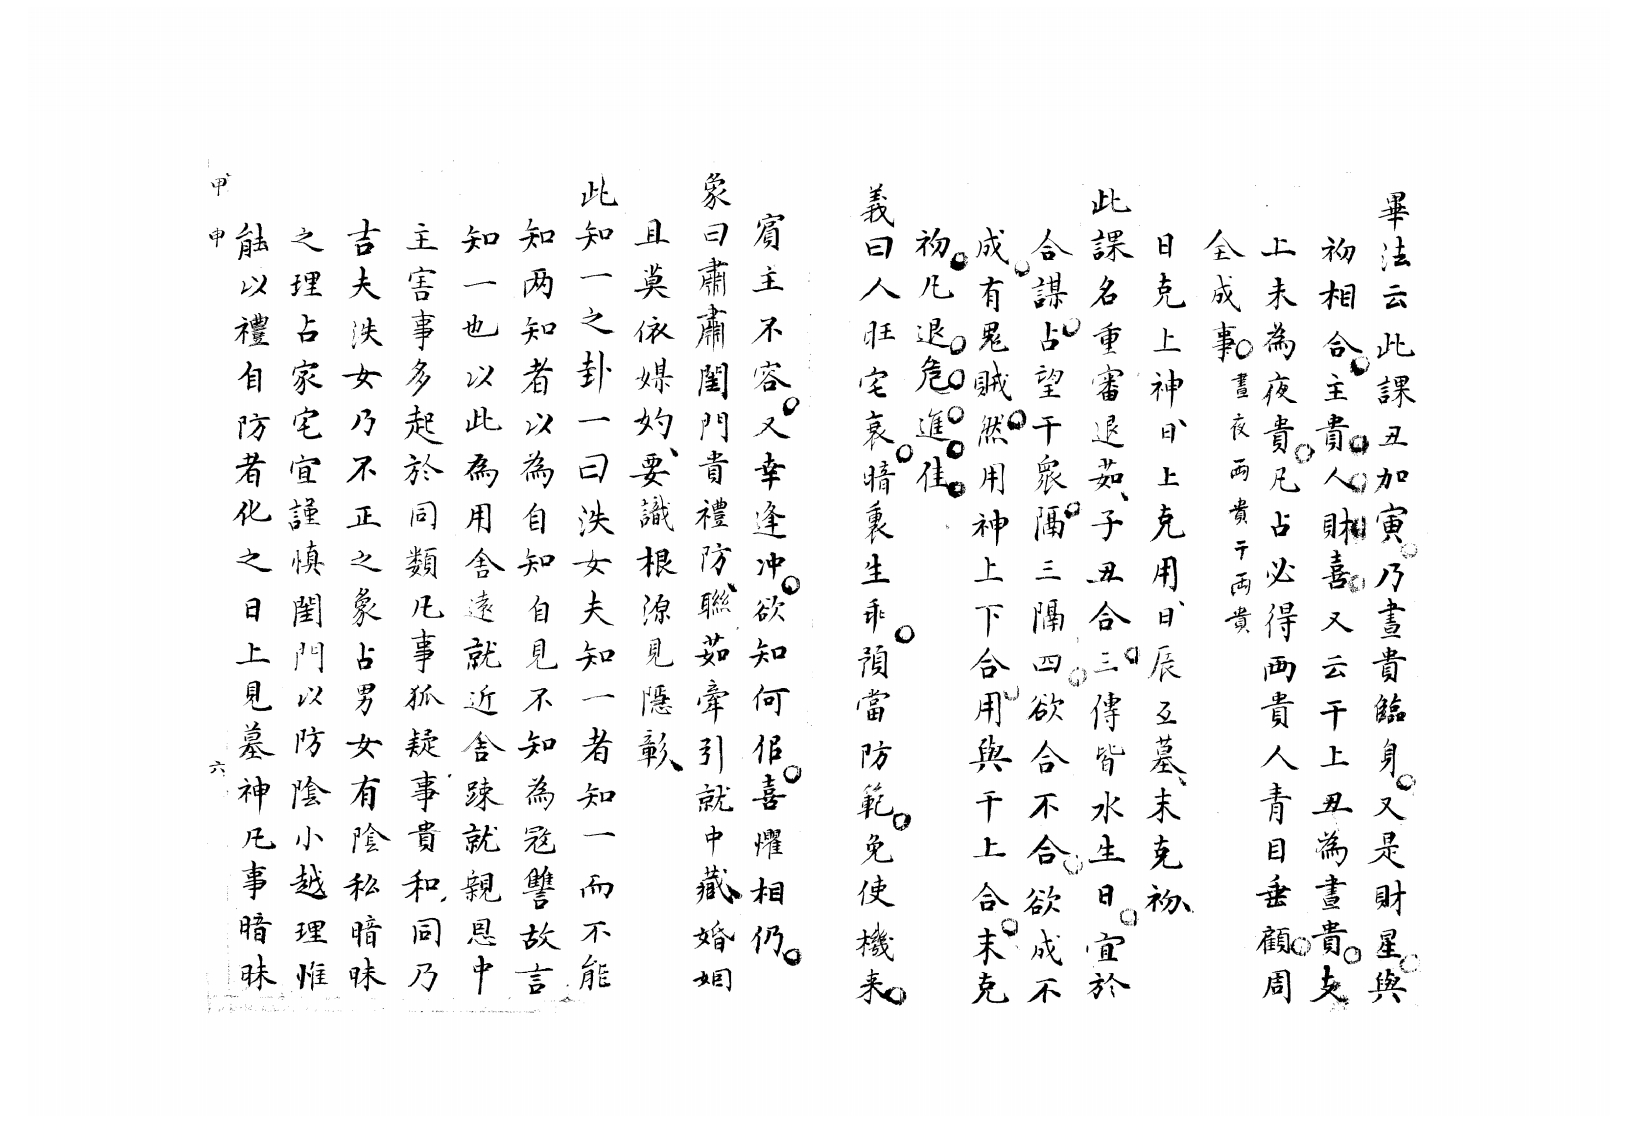 畢法云此課丑加寅乃晝貴臨身又是財星與
初相合主貴人財喜又云干上丑為晝貴支
上未為夜貴凡占必得两貴人青目垂顧周
全成事晝夜两貴干两貴
日克上神日上克用日辰互墓末克初
此課名重審退茹子丑合三傳皆水生日宜於
合謀占望干衆隔三隔四欲合不合欲成不
成有鬼賊然用神上下合用與干上合末克
初凡退危進佳
義曰人旺宅衰暗裏生乖預當防範免使機来
賓主不容又幸逢冲欲知何佀喜懼相仍
象曰肅肅閨門貴禮防聯茹牽引就中藏婚姻
且莫依媒妁要識根源見隱彰
此知一之卦一曰泆女夫知一者知一而不能
知两知者以為自知自見不知為冦讐故言
知一也以此為用舍遠就近舍踈就親恩中
主害事多起於同類凡事狐疑事貴和同乃
吉夫泆女乃不正之象占男女有陰私暗昧
之理占家宅宜謹慎閨門以防陰小越理惟
能以禮自防者化之日上見墓神凡事暗昧
甲申 六